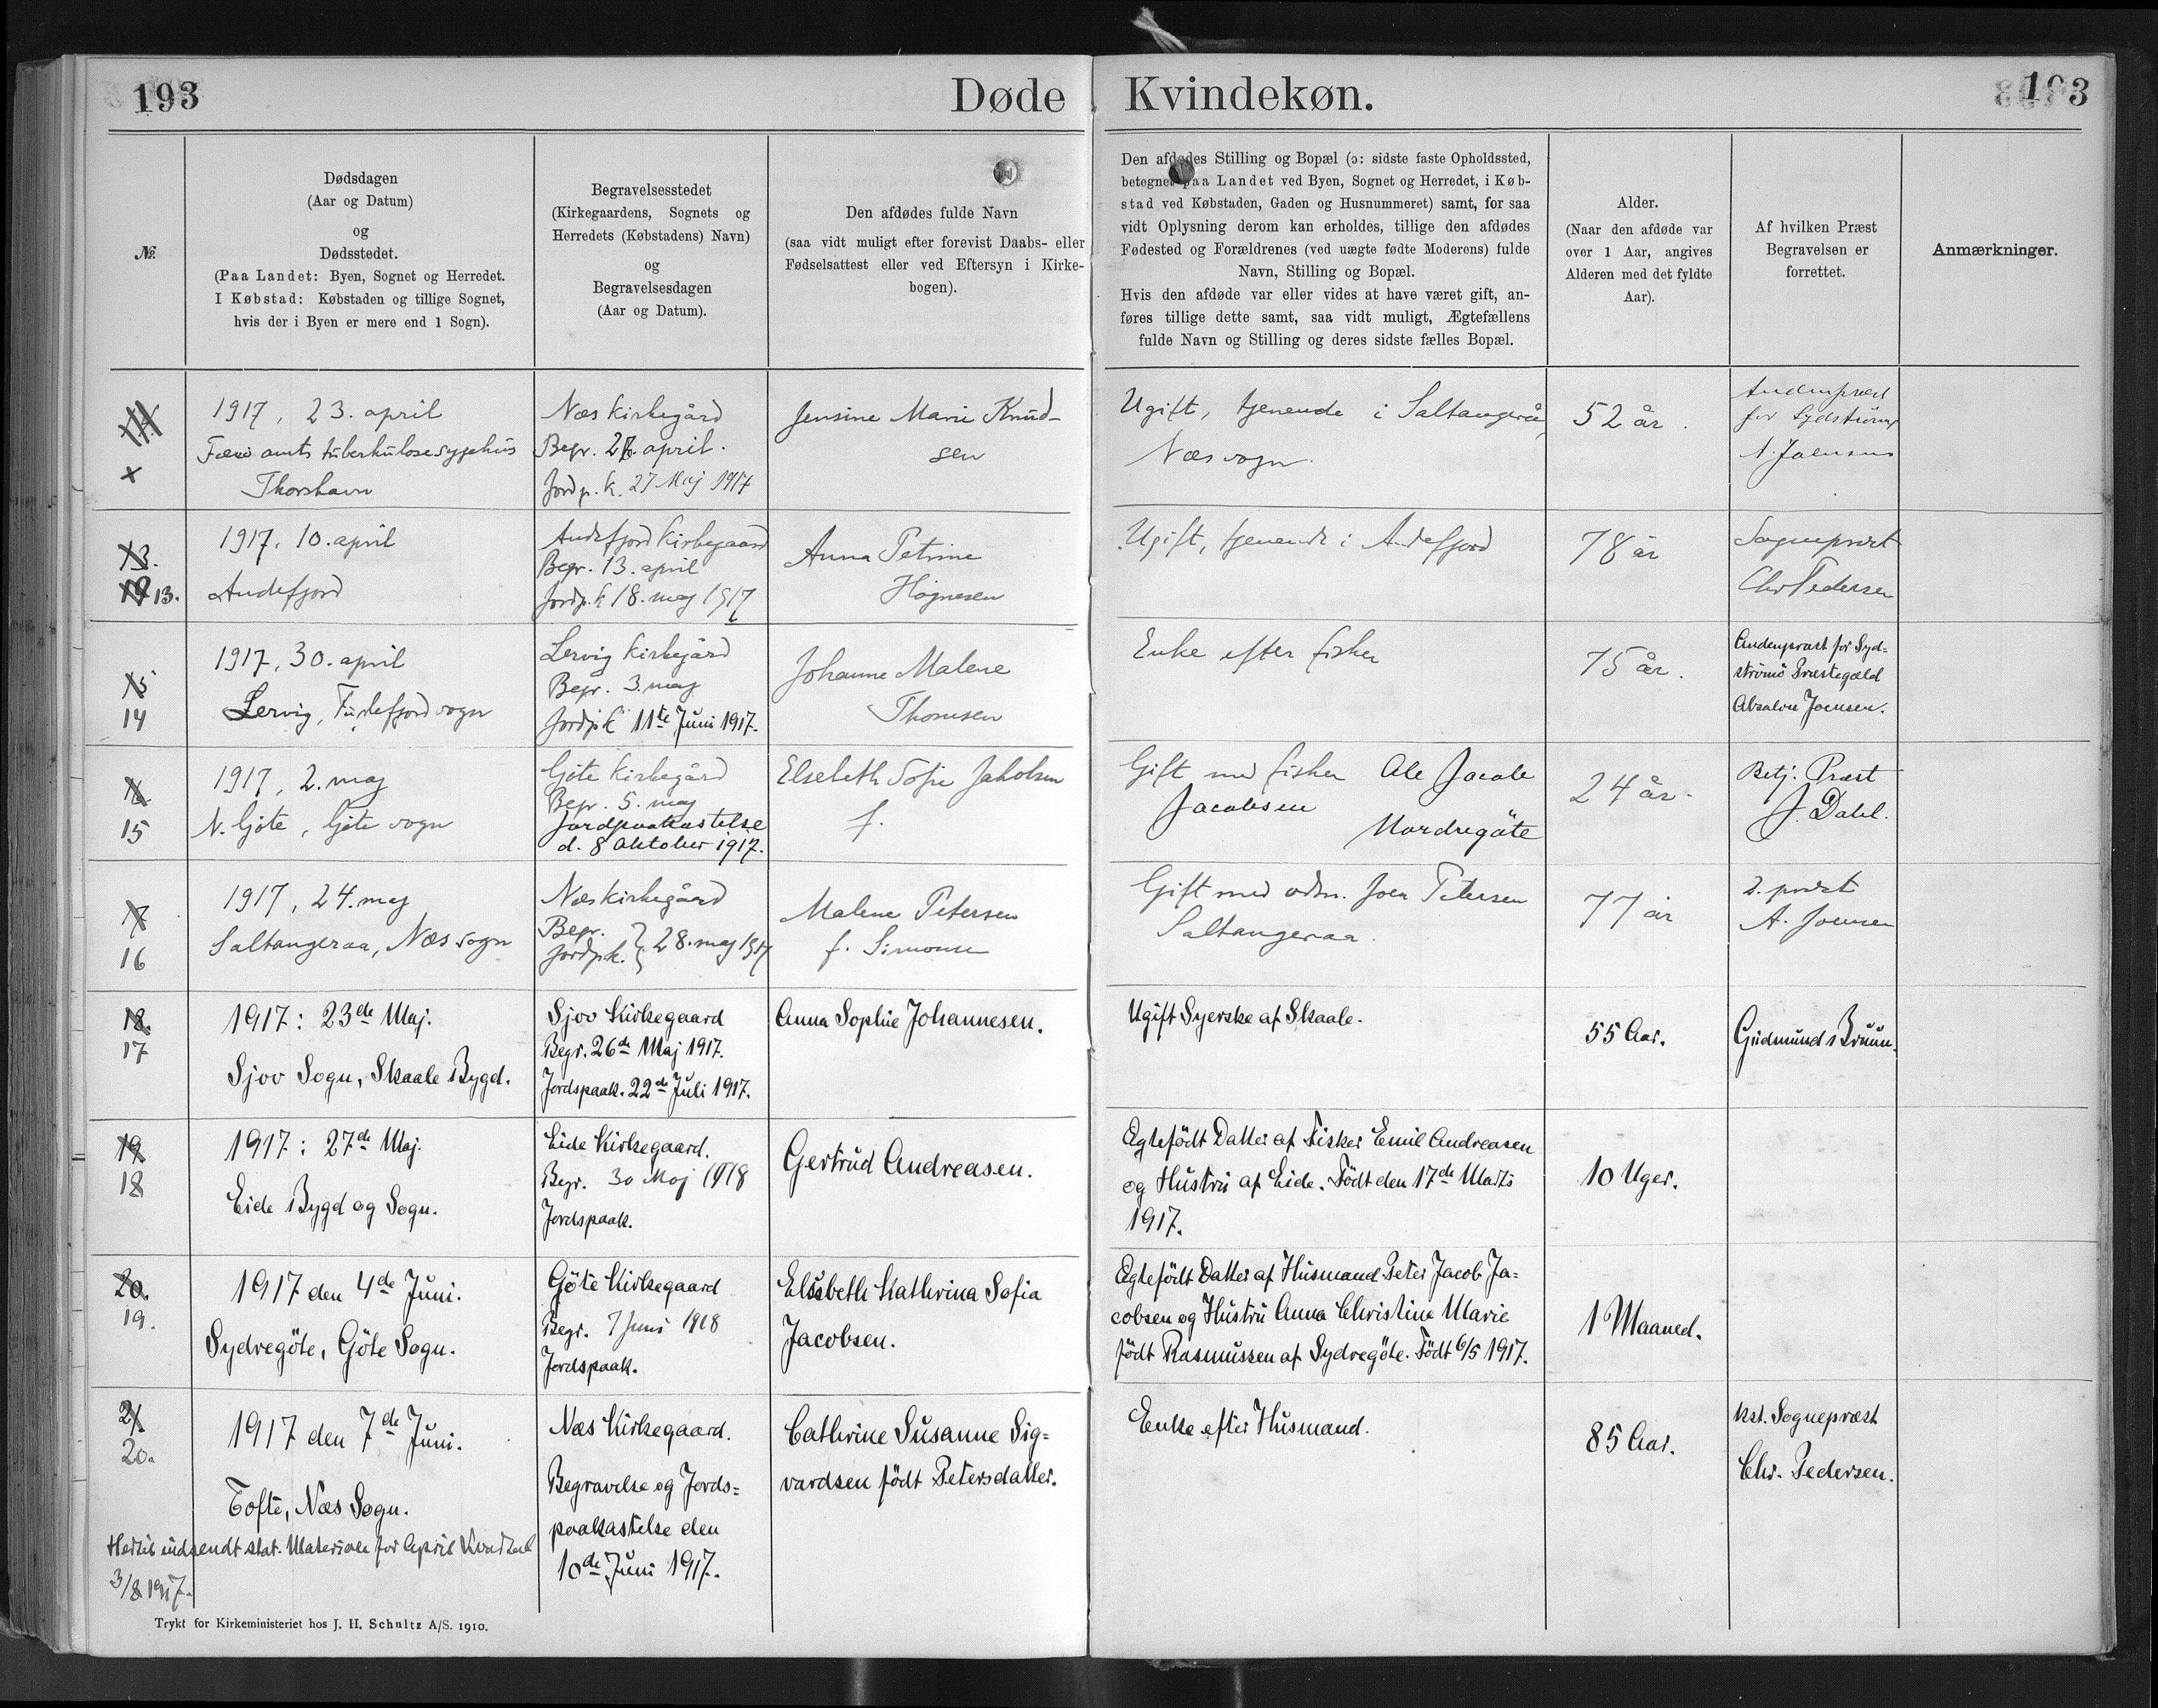 193
Døde Kvindekøn.
193
№
Dødsdagen
(Aar og Datum)
og
Dødsstedet.
(Paa Landet: Byen, Sognet og Herredet.
I Købstad: Købstaden og tillige Sognet,
hvis der i Byen er mere end 1 Sogn).
Begravelsesstedet
(Kirkegaardens, Sognets og
Herredets (Købstadens) Navn)
og
Begravelsesdagen
(Aar og Datum).
Den afdødes fulde Navn
(saa vidt muligt efter forevist Daabs- eller
Fødselsattest eller ved Eftersyn i Kirke-
bogen).
Den afdødes Stilling og Bopæl (ɔ: sidste faste Opholdssted,
betegnet paa Landet ved Byen, Sognet og Herredet, i Køb-
stad ved Købstaden, Gaden og Husnummeret) samt, for saa
vidt Oplysning derom kan erholdes, tillige den afdødes
Fødested og Forældrenes (ved uægte fødte Moderens) fulde
Navn, Stilling og Bopæl.
Hvis den afdøde var eller vides at have været gift, an-
føres tillige dette samt, saa vidt muligt, Ægtefællens
fulde Navn og Stilling og deres sidste fælles Bopæl.
Alder.
(Naar den afdøde var
over 1 Aar, angives
Alderen med det fyldte
Aar).
Af hvilken Præst
Begravelsen er
forrettet.
Anmærkninger.
x
1917, 23. april
Færø amts tuberkulosesygehus
Thorshavn
Næs kirkegård
Begr. april.
Jordp.k. 27 Maj 1917
Jensine Marie Knud-
sen
Ugift, tjenende i Saltangerå,
Næs sogn.
52 år.
Andenpræst
for Sydstrømø
A. Joensen
13.
13.
1917, 10. april
Andefjord
Andefjord Kirkegaard
Begr. 13. april
Jordp.k 18. maj 1917
Anna Petrine
Høgnesen
Ugift, tjenende i Andefjord
78 år
Sognepræst
Chr Pedersen
15
14
1917, 30. april
Lervig, Fuglefjord sogn
Lervig Kirkegård
Begr. 3. maj
Jordpk 11te Juni 1917.
Johanne Malene
Thomsen
Enke efter fisker
75 år.
Andenpræst for Syd-
strømø Præstegæld
Absalon Joensen.
16
15
1917, 2. maj
N. Gjøte, Gjøte sogn
Gjøte Kirkegård
Begr. 5. maj
Jordpaakastelse
d. 8 Oktober 1917.
Elsebeth Sofie Jakobsen
f.
Gift med fisker Ole Jacob
Jacobsen
Nordregöte
24 år.
Betj. Præst
J. Dahl.
17
16
1917, 24. maj
Saltangeraa, Næs sogn
Næs kirkegård
Begr.
Jordpk. } 28. maj 1917
Malene Petersen
f. Simonsen
Gift med odm. Joen Petersen
Saltangeraa.
77 år
2. præst
A. Joensen
18.
17
1917: 23de Maj.
Sjov Sogn, Skaale Bygd.
Sjov Kirkegaard
Begr. 26de Maj 1917.
Jordspaak. 22de Juli 1917.
Anna Sophie Johannesen.
Ugift Syerske af Skaale.
55 Aar.
Gudmund Bruun.
19
18
1917: 27de Maj.
Eide Bygd og Sogn.
Eide Kirkegaard.
Begr. 30 Maj 1918
Jordspaak.
Gertrud Andreasen.
Ægtefödt Datter af Fisker Emil Andreasen
og Hustru af Eide. Födt den 17de Marts
1917.
10 Uger.
20.
19.
1917 den 4de Juni.
Sydregöte, Göte Sogn.
Göte Kirkegaard
Begr. 7 Juni 1918
Jordspaak.
Elsebeth Kathrina Sofia
Jacobsen.
Ægtefödt Datter af Husmand Peter Jacob Ja=
cobsen og Hustru Anna Christine Marie
födt Rasmussen af Sydregöte. Födt 6/5 1917.
1 Maaned.
21
20.
1917 den 7de Juni.
Tofte, Næs Sogn.
Næs Kirkegaard.
Begravelse og Jords=
paakastelse den
10de Juni 1917.
Cathrine Susanne Sig=
vardsen födt Petersdatter.
Enke efter Husmand.
85 Aar.
kst. Sognepræst
Chr. Pedersen.
Hertil indsendt stat. Materiale for April Kvartal
3/8 1917.
Trykt for Kirkeministeriet hos J. H. Schultz A/S. 1910.